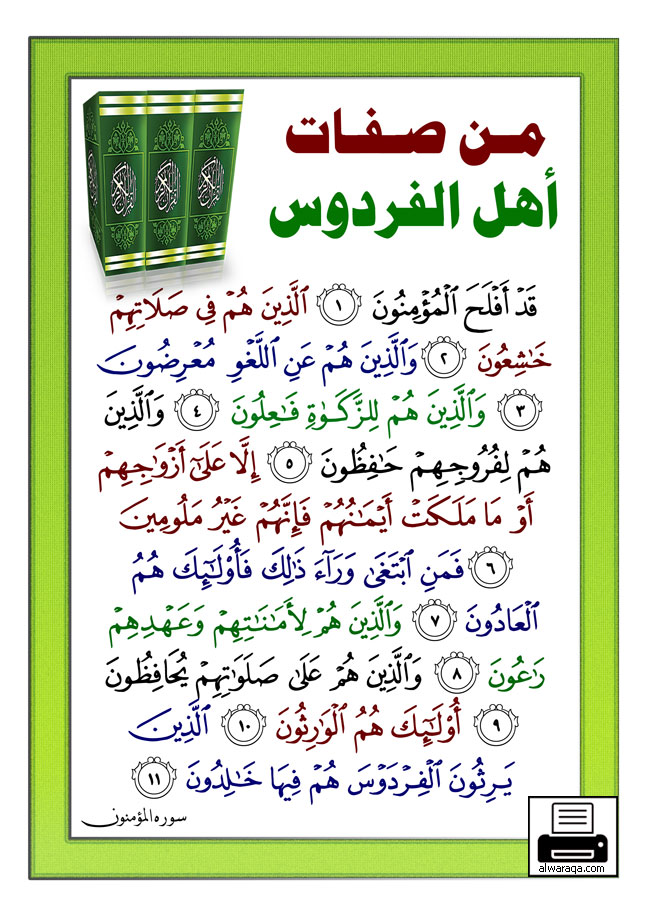 من صفات
أهل الفردوس
قَدْ أَفْلَحَ ٱلْمُؤْمِنُونَ ١ ٱلَّذِينَ هُمْ فِى صَلَاتِهِمْ
خَٰشِعُونَ ٢ وَٱلَّذِينَ هُمْ عَنِ ٱللَّغْوِ مُعْرِضُونَ
٣ وَٱلَّذِينَ هُمْ لِلزَّكَوٰةِ فَٰعِلُونَ ٤ وَٱلَّذِينَ
هُمْ لِفُرُوجِهِمْ حَٰفِظُونَ ٥ إِلَّا عَلَىٰٓ أَزْوَٰجِهِمْ
أَوْ مَا مَلَكَتْ أَيْمَٰنُهُمْ فَإِنَّهُمْ غَيْرُ مَلُومِينَ
٦ فَمَنِ ٱبْتَغَىٰ وَرَآءَ ذَٰلِكَ فَأُو۟لَٰٓئِكَ هُمُ
ٱلْعَادُونَ ٧ وَٱلَّذِينَ هُمْ لِأَمَٰنَٰتِهِمْ وَعَهْدِهِمْ
رَٰعُونَ ٨ وَٱلَّذِينَ هُمْ عَلَىٰ صَلَوَٰتِهِمْ يُحَافِظُونَ
٩ أُو۟لَٰٓئِكَ هُمُ ٱلْوَٰرِثُونَ ١٠ ٱلَّذِينَ
يَرِثُونَ ٱلْفِرْدَوْسَ هُمْ فِيهَا خَٰلِدُونَ ١١
سورة المؤمنون
alwaraqa.com